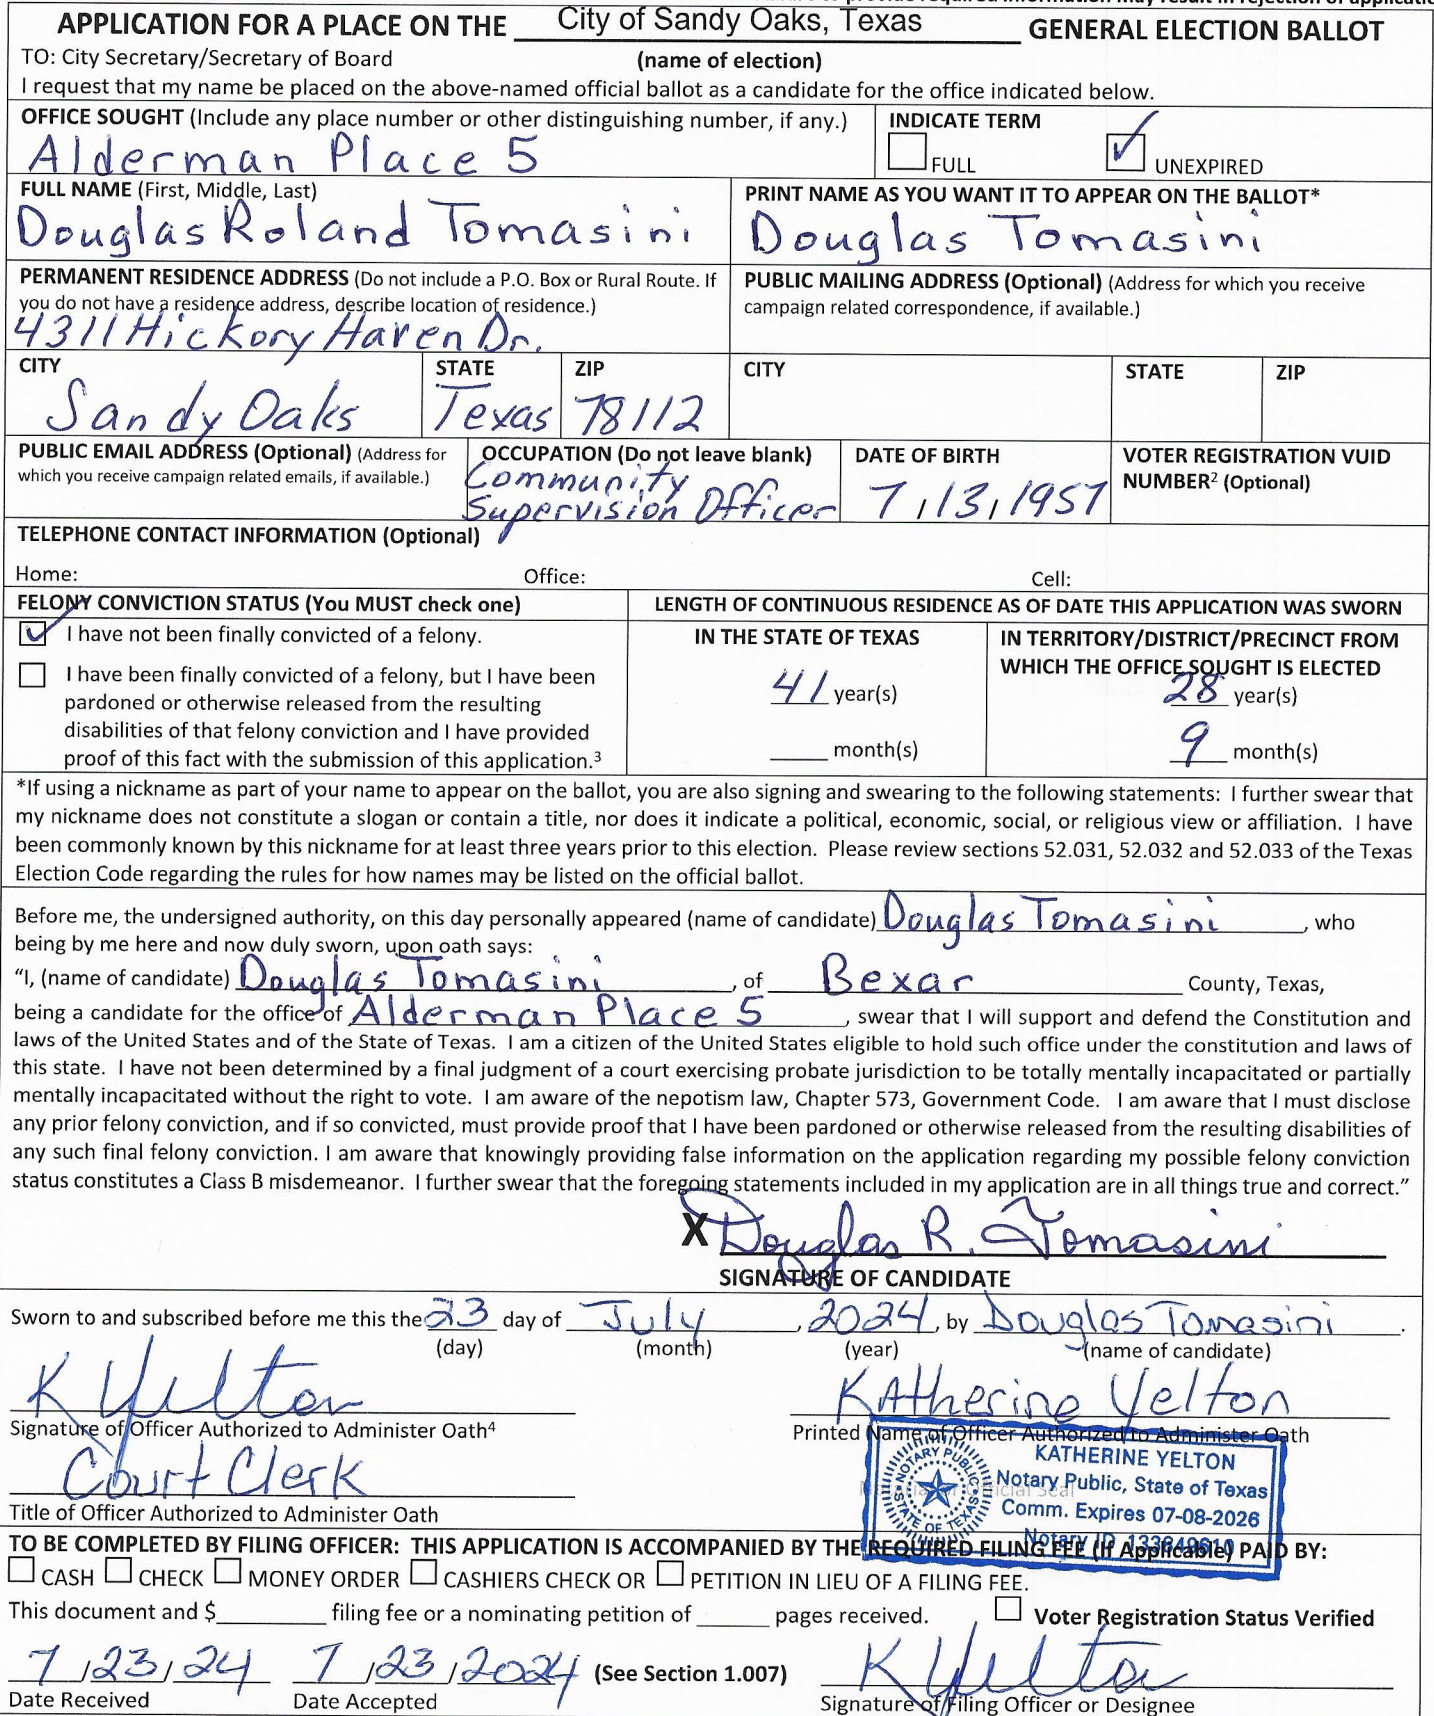 APPLICATION FOR A PLACE ON THE City of Sandy Oaks, Texas GENERAL ELECTION BALLOT
TO: City Secretary/Secretary of Board (name of election)
I request that my name be placed on the above-named official ballot as a candidate for the office indicated below.
OFFICE SOUGHT (Include any place number or other distinguishing number, if any.)
Alderman Place 5
INDICATE TERM
FULL ✓ UNEXPIRED
FULL NAME (First, Middle, Last)
Douglas Roland Tomasini
PRINT NAME AS YOU WANT IT TO APPEAR ON THE BALLOT*
Douglas Tomasini
PERMANENT RESIDENCE ADDRESS (Do not include a P.O. Box or Rural Route. If
you do not have a residence address, describe location of residence.)
4311 Hickory Haven Dr.
PUBLIC MAILING ADDRESS (Optional) (Address for which you receive
campaign related correspondence, if available.)
CITY
Sandy Oaks
STATE
Texas
ZIP
78112
CITY
STATE
ZIP
PUBLIC EMAIL ADDRESS (Optional) (Address for
which you receive campaign related emails, if available.)
OCCUPATION (Do not leave blank)
Community
Supervision Officer
DATE OF BIRTH
7/13/1957
VOTER REGISTRATION VUID
NUMBER² (Optional)
TELEPHONE CONTACT INFORMATION (Optional)
Home: Office: Cell:
FELONY CONVICTION STATUS (You MUST check one)
✓ I have not been finally convicted of a felony.
I have been finally convicted of a felony, but I have been
pardoned or otherwise released from the resulting
disabilities of that felony conviction and I have provided
proof of this fact with the submission of this application.³
LENGTH OF CONTINUOUS RESIDENCE AS OF DATE THIS APPLICATION WAS SWORN
IN THE STATE OF TEXAS
41 year(s)
month(s)
IN TERRITORY/DISTRICT/PRECINCT FROM
WHICH THE OFFICE SOUGHT IS ELECTED
28 year(s)
9 month(s)
*If using a nickname as part of your name to appear on the ballot, you are also signing and swearing to the following statements: I further swear that
my nickname does not constitute a slogan or contain a title, nor does it indicate a political, economic, social, or religious view or affiliation. I have
been commonly known by this nickname for at least three years prior to this election. Please review sections 52.031, 52.032 and 52.033 of the Texas
Election Code regarding the rules for how names may be listed on the official ballot.
Before me, the undersigned authority, on this day personally appeared (name of candidate) Douglas Tomasini, who
being by me here and now duly sworn, upon oath says:
"I, (name of candidate) Douglas Tomasini, of Bexar County, Texas,
being a candidate for the office of Alderman Place 5, swear that I will support and defend the Constitution and
laws of the United States and of the State of Texas. I am a citizen of the United States eligible to hold such office under the constitution and laws of
this state. I have not been determined by a final judgment of a court exercising probate jurisdiction to be totally mentally incapacitated or partially
mentally incapacitated without the right to vote. I am aware of the nepotism law, Chapter 573, Government Code. I am aware that I must disclose
any prior felony conviction, and if so convicted, must provide proof that I have been pardoned or otherwise released from the resulting disabilities of
any such final felony conviction. I am aware that knowingly providing false information on the application regarding my possible felony conviction
status constitutes a Class B misdemeanor. I further swear that the foregoing statements included in my application are in all things true and correct."
X Douglas R. Tomasini
SIGNATURE OF CANDIDATE
Sworn to and subscribed before me this the 23 day of July, 2024, by Douglas Tomasini.
(day) (month) (year) (name of candidate)
K Yelton
Signature of Officer Authorized to Administer Oath⁴
Katherine Yelton
Printed Name of Officer Authorized to Administer Oath
Court Clerk
Title of Officer Authorized to Administer Oath
NOTARY PUBLIC
STATE OF TEXAS
KATHERINE YELTON
Notary Public, State of Texas
Comm. Expires 07-08-2026
Notary ID
TO BE COMPLETED BY FILING OFFICER: THIS APPLICATION IS ACCOMPANIED BY THE REQUIRED FILING FEE (If Applicable) PAID BY:
CASH CHECK MONEY ORDER CASHIERS CHECK OR PETITION IN LIEU OF A FILING FEE.
This document and $ filing fee or a nominating petition of pages received. Voter Registration Status Verified
7/23/24 7/23/2024 (See Section 1.007) K Yelton
Date Received Date Accepted Signature of Filing Officer or Designee